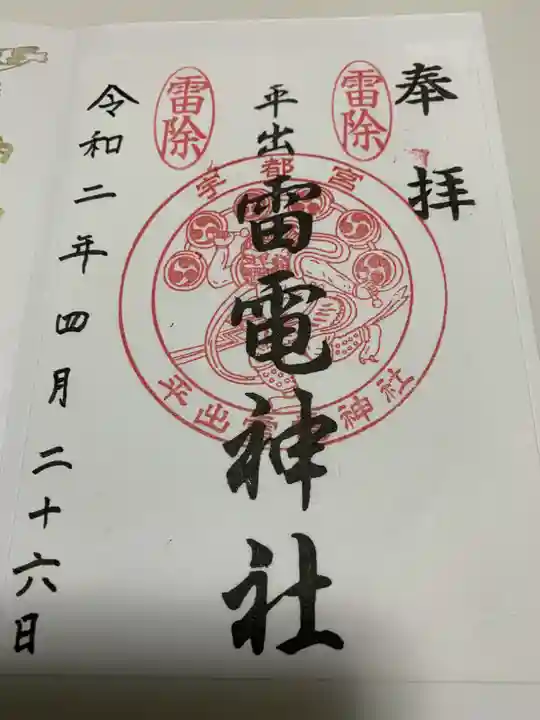 奉拝
雷除
平出
雷電神社
雷除
宇都宮
平出雷電神社
令和二年四月二十六日